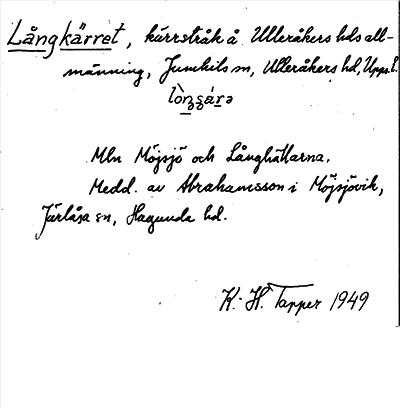 Långkärret, kärrstråk å Ulleråkers hds all-
männing, Jumkils sn, Ulleråkers hd, Upps. l.
Mln Möjsjö och Långhällarna.
Medd. av Abrahamsson i Möjsjövik,
Järlåsa sn, Hagunda hd.
K.-H. Tapper 1949